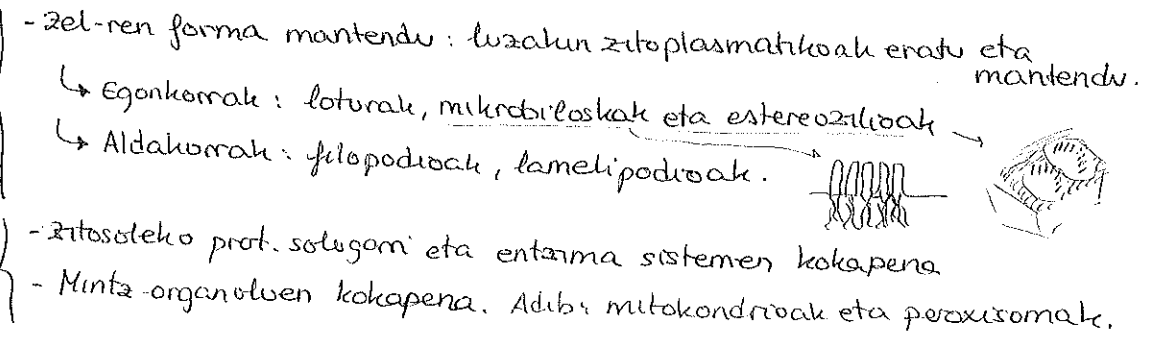 - Zel-ren forma mantendu : luzakun zitoplasmatikoak eratu eta
mantendu.
↳ Egonkorrak : loturak, mikrobiloskak eta estereozilioak
↳ Aldakorrak : filopodioak, lamelipodioak.
- Zitosoleko prot. solugarri eta entzima sistemen kokapena
- Mintz-organuluen kokapena. Adib: mitokondrioak eta peroxisomak.